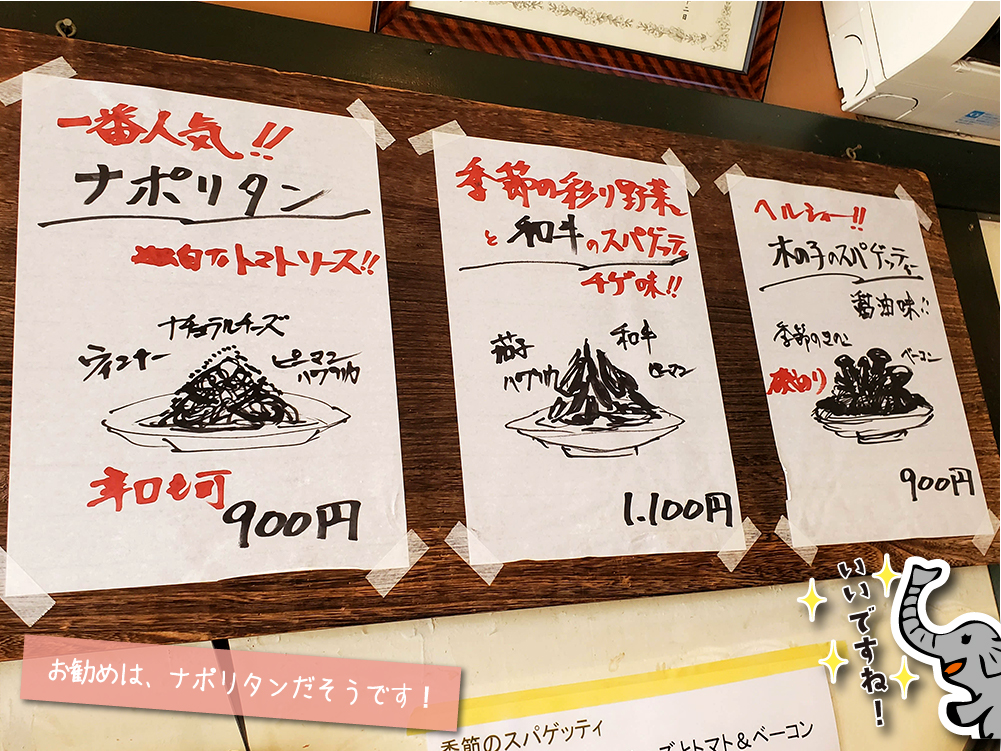 一番人気!!
ナポリタン
トマトソース!!
ナチュラルチーズ
ウィンナー
ピーマン
パプリカ
辛口も可
900円
季節の彩り野菜
と和牛のスパゲッティ
チゲ味!!
茄子
パプリカ
和牛
ピーマン
1.100円
ヘルシー!!
木の子のスパゲッティ
醤油味!!
季節のきのこ
ベーコン
900円
いいですね!
お勧めは、ナポリタンだそうです!
季節のスパゲッティ
トマト&ベーコン